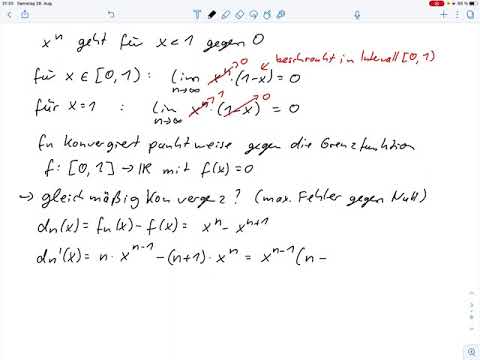 21:33 Samstag 28. Aug.
xⁿ geht für x<1 gegen 0
beschränkt in Intervall [0,1)
für x ∈ [0,1) : lim n→∞ xⁿ → 0 · (1-x) = 0
für x=1 : lim n→∞ xⁿ → 1 · (1-x) → 0 = 0
fn konvergiert punktweise gegen die Grenzfunktion
f: [0,1] → IR mit f(x)=0
→ gleichmäßig Konvergenz? (max. Fehler gegen Null)
dn(x) = fn(x) - f(x) = xⁿ - xⁿ⁺¹
dn'(x) = n · xⁿ⁻¹ - (n+1) · xⁿ = xⁿ⁻¹ (n -